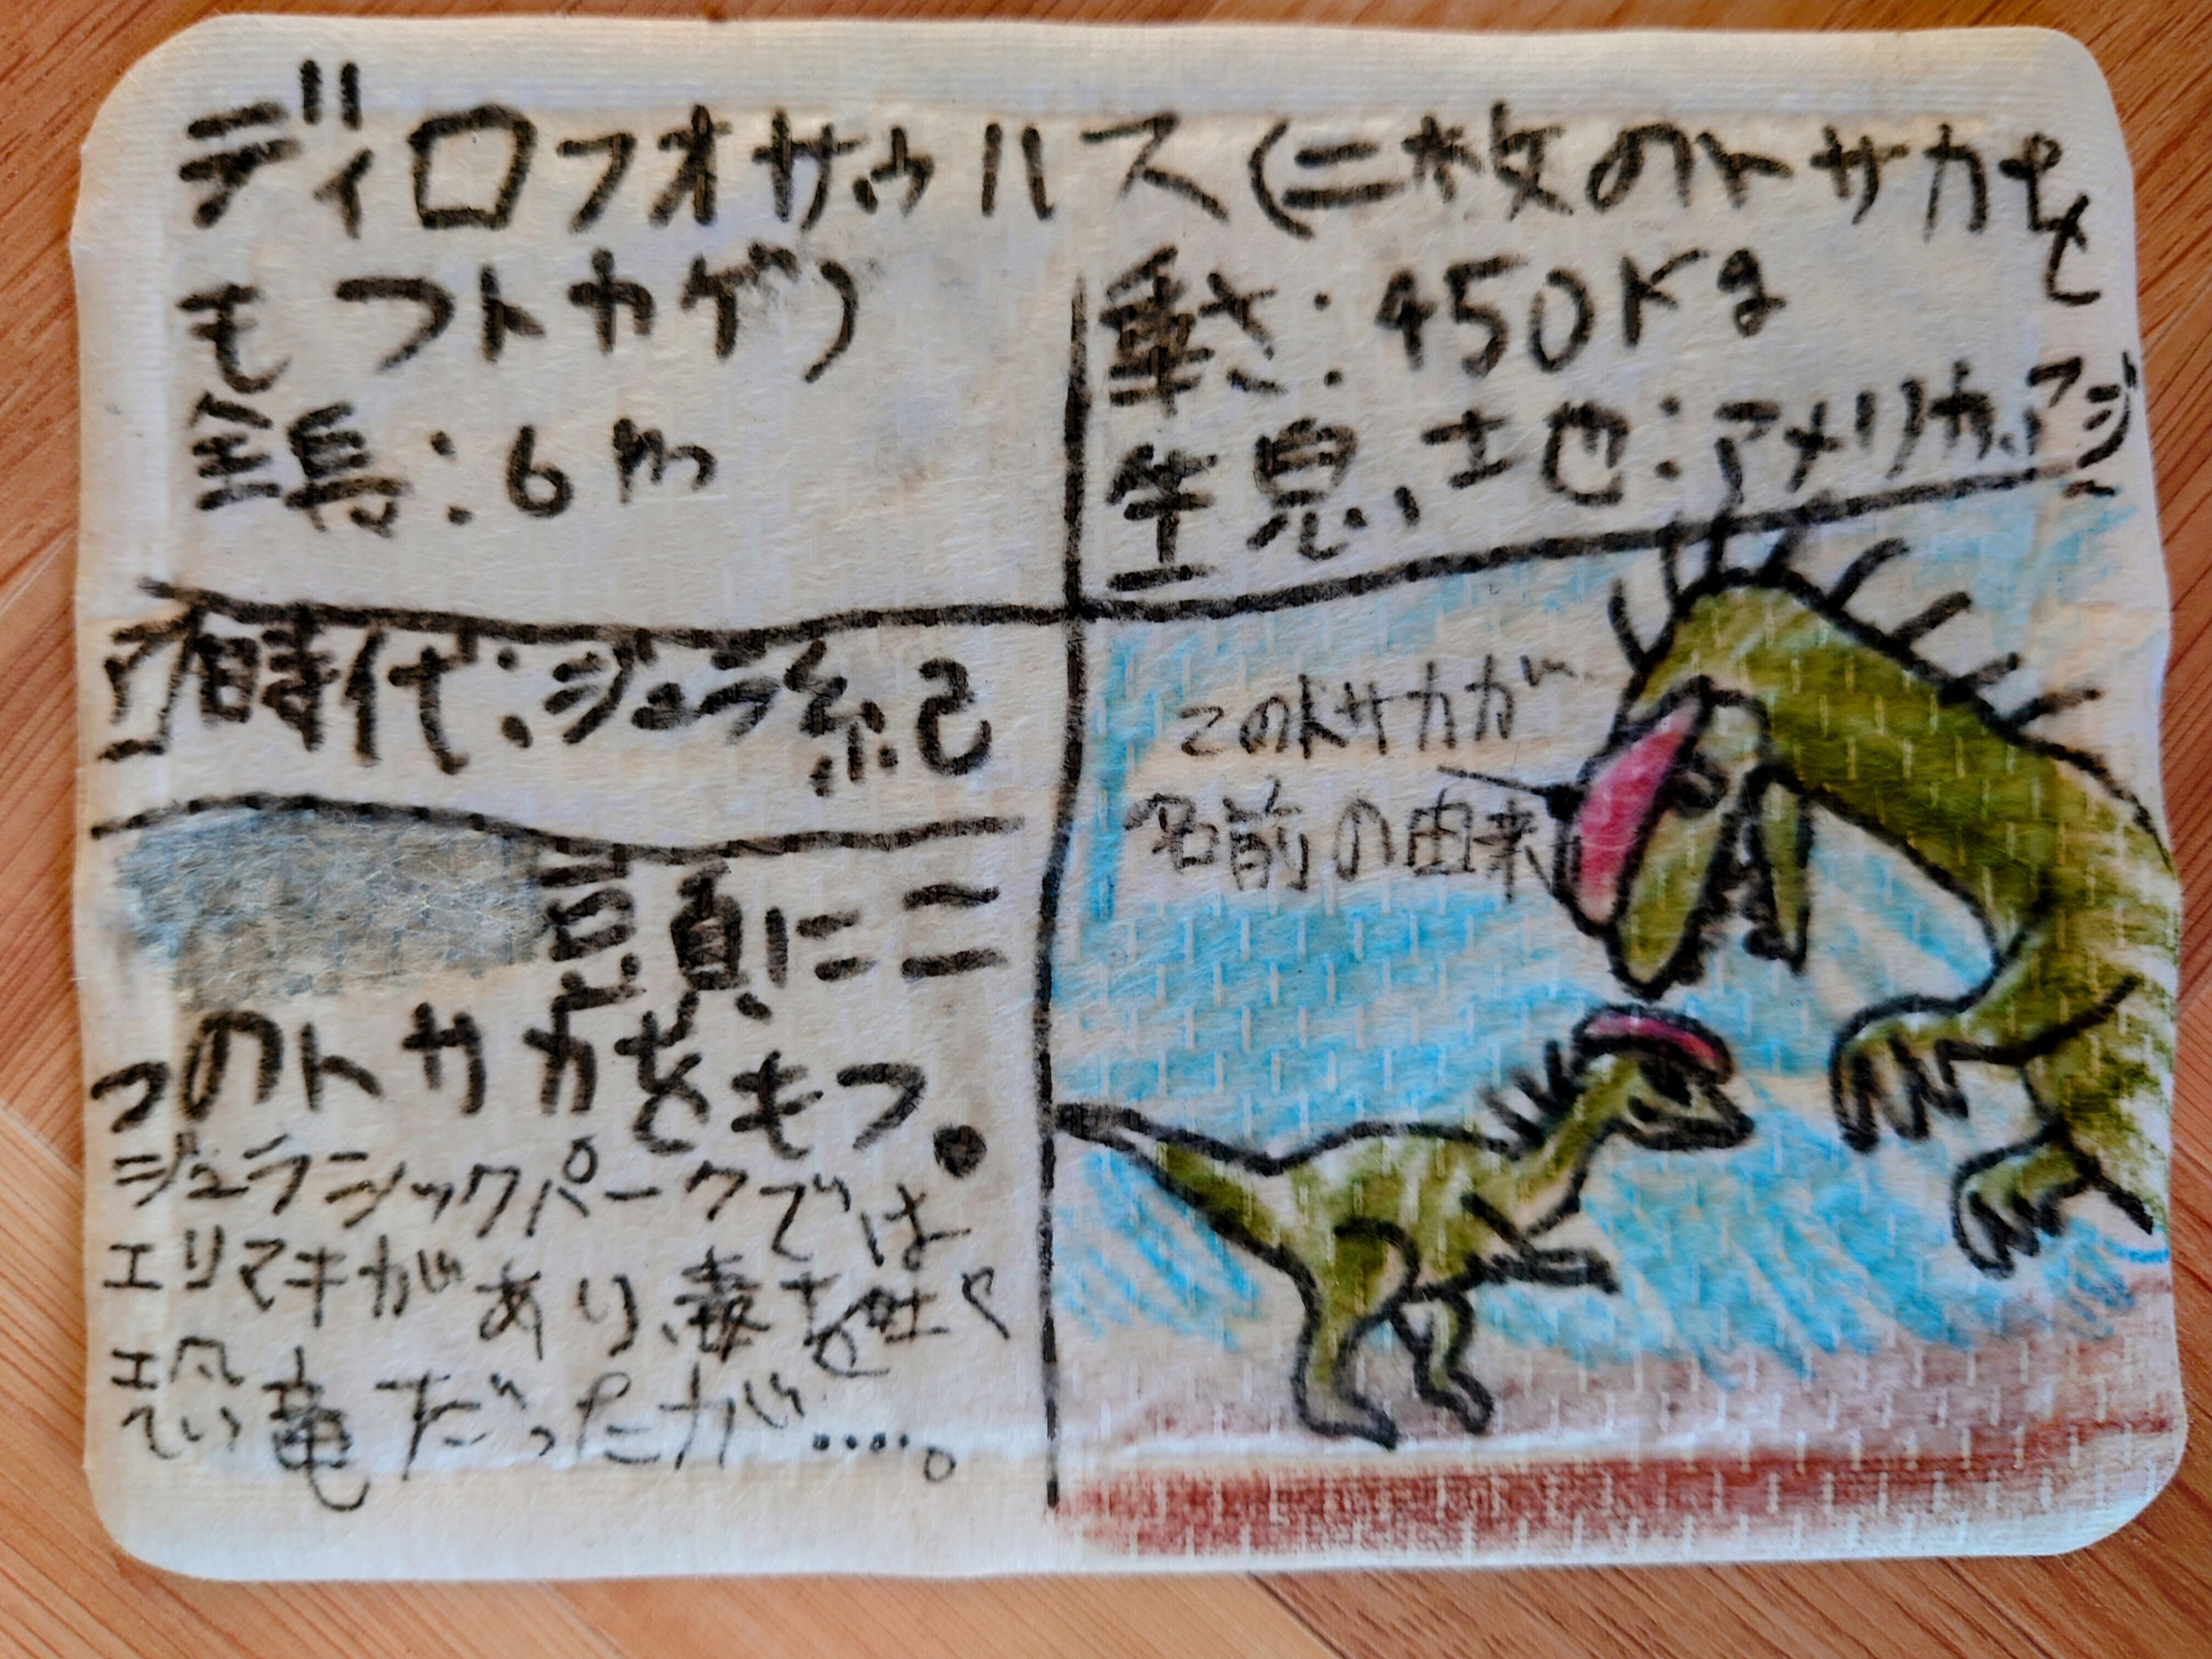 ディロフオサウルス(二枚のトサカを
もつトカゲ)
全長:6m
重さ:450Kg
生息地:アメリカ、アジ
ア
時代:ジュラ紀
頭に二
つのトサカをもつ。
ジュラシックパークでは
エリマキがあり、毒を吐く
恐竜だったが....。
このトサカが
名前の由来